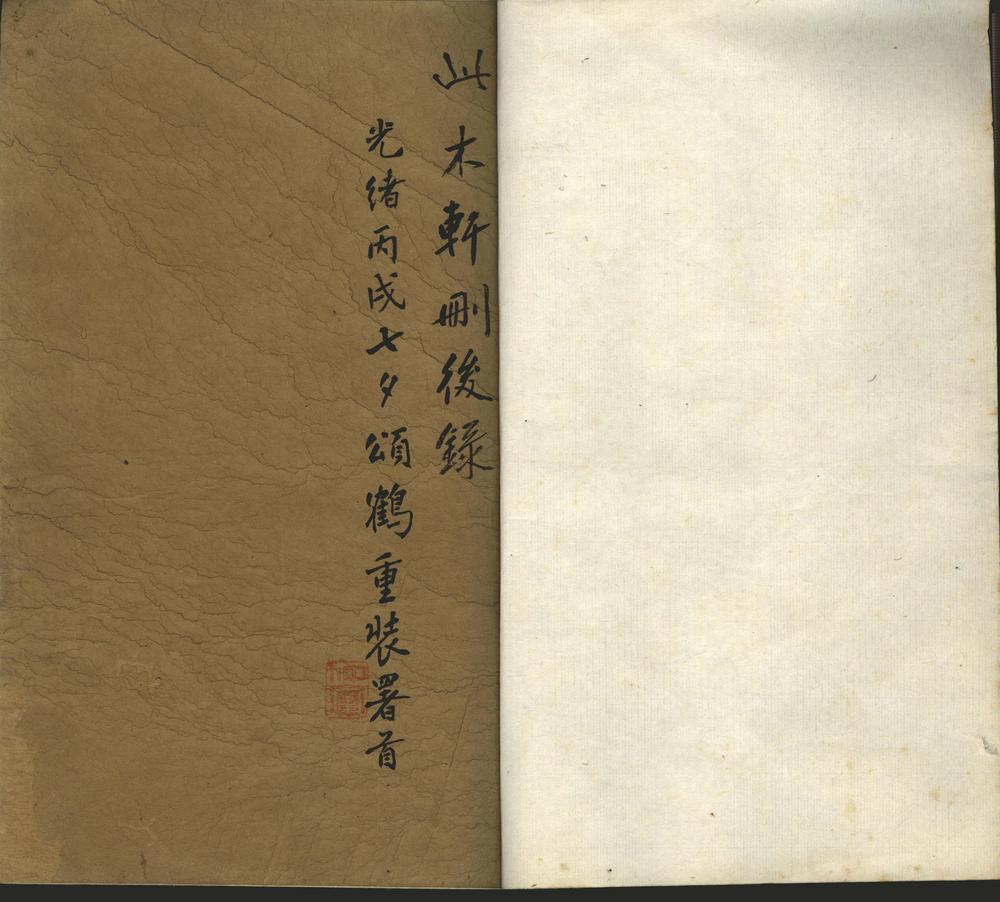 此木軒刪後錄
光緒丙戌七夕頌鶴重裝署首